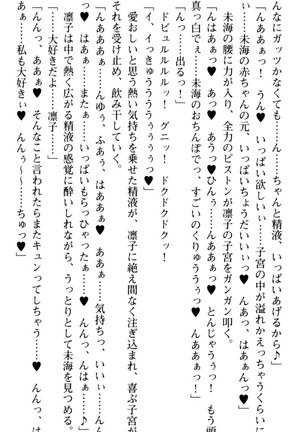 んなにガッツかなくても……ん……ちゃんと精液　いっぱいあげるから……
んあああぅ！　うん♥　いっぱい欲しいぃ……子宮の中が溢れかえっちゃうくらい
未海の赤ちゃんの元、いっぱいちょうだいいぃっ♥　んあっ、はあんんっ♥」
未海の腰に力が入り、全力のピストンが凛子の子宮をガンガン叩く。
んはあぁっ♥　あっ♥　あうっ♥　ひんぅ……んああぁっ♥　とんじゃうぅっ！　もう頭
真っ白でぇ♥　未海のおちんぽでっ、すごいのくりゅううぅっ♥　んああぁっ！」
んっ……出るっ！」
ドピュルルルルッ！　グニッ！　ドクドクドクッ！
イ、イっきゅううううぅぅぅっ♥」
愛おしいと思う熱い気持ちを乗せた精液が、凛子に絶え間なく注ぎ込まれ、喜ぶ子宮が
それを受け止め、飲み干していく。
んあああぁ……んゆぅ、ふあぅ、はああぁ♥　あああぁ……気持ちっ、いいぃ……♥　ん
はあぁ……またぁ……いっぱいもらっひゃったぁ……♥　んんっ、んはぁ……♪」
凛子は中で熱く広がる精液の感覚に酔いしれながら、うっとりとして未海を見つめる。
……大好きだよ……凛子」
んんっ、ああぁ♥　そんなこと言われたらまたキュンってしちゃう……♥　んんっ、は
あぁ……私も大好きぃ♥　んんぅ～……ちゅっ♥」